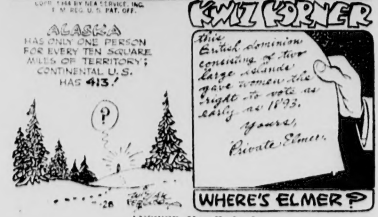 COPR. 1944 BY NEA SERVICE, INC.
T. M. REG. U. S. PAT. OFF.
ALASKA
HAS ONLY ONE PERSON
FOR EVERY TEN SQUARE
MILES OF TERRITORY;
CONTINENTAL U.S.
HAS 413!
?
KWIZ KORNER
this
British dominion
consisting of two
large islands
gave women the
right to vote as
early as 1893.
Yours,
Private Elmer.
WHERE'S ELMER?